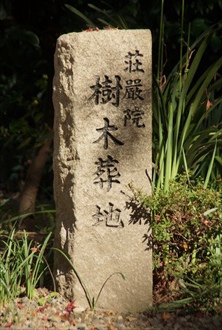 荘厳院
樹木葬墓地